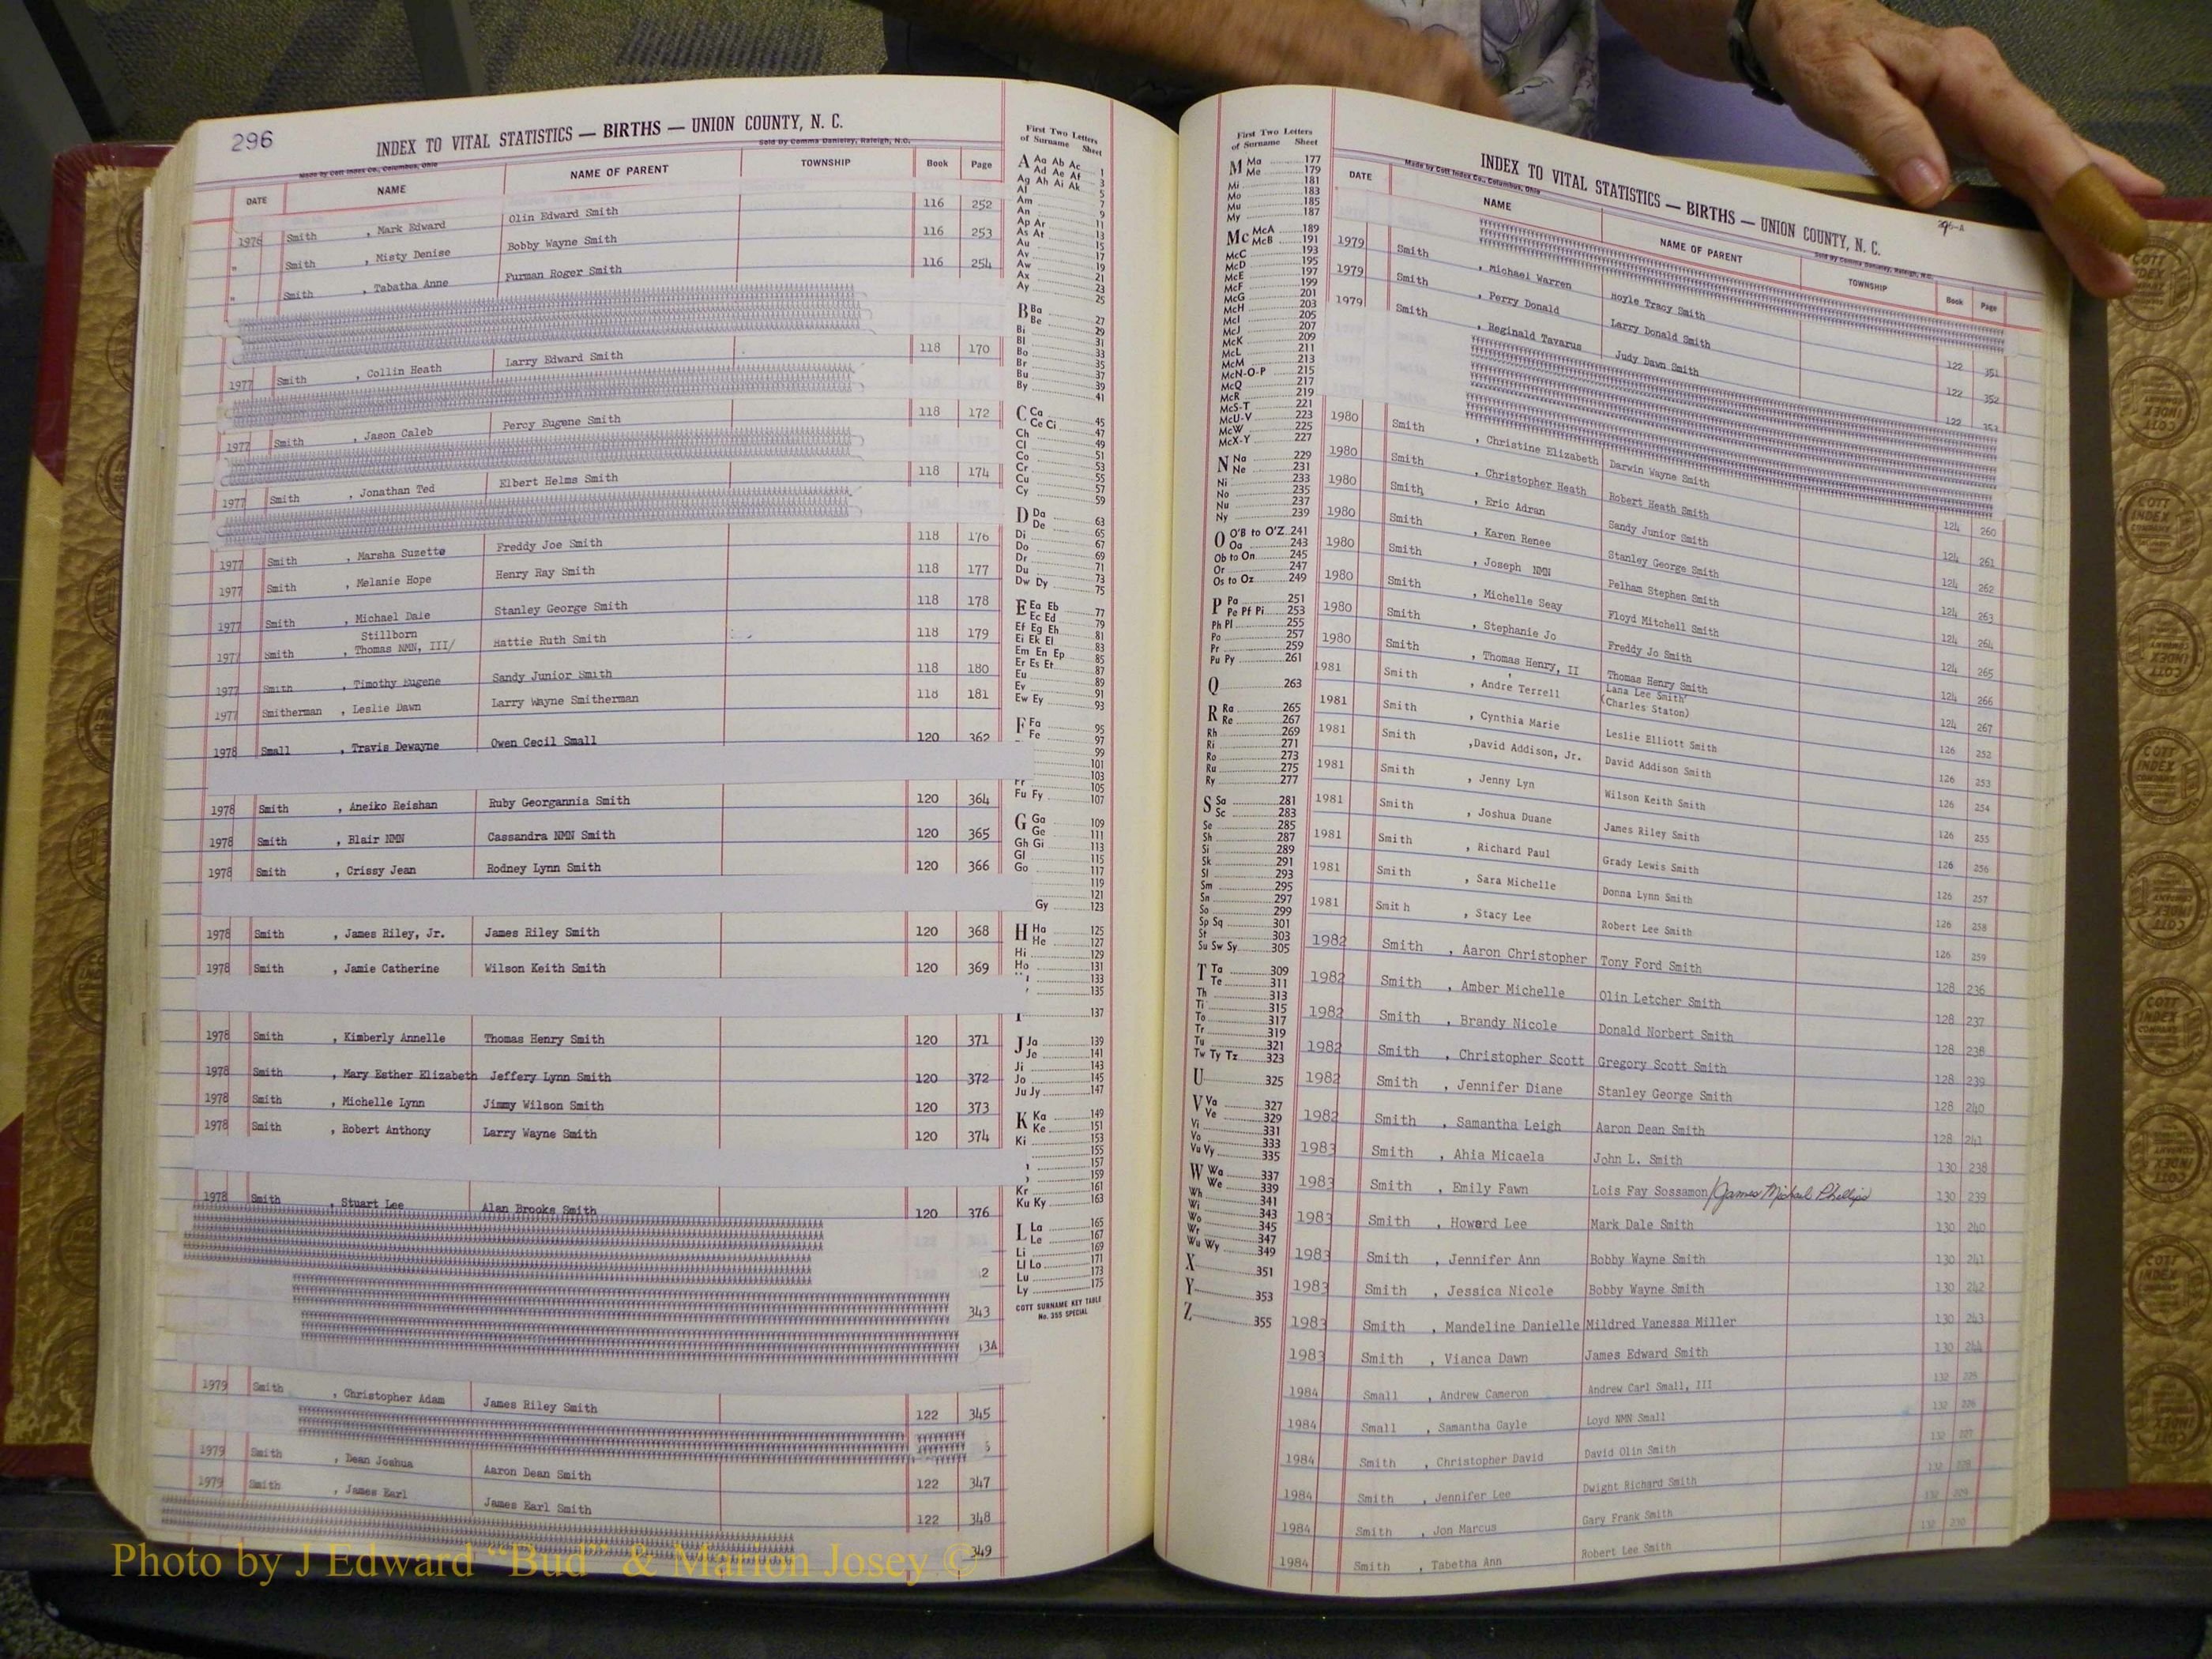 296
INDEX TO VITAL STATISTICS — BIRTHS — UNION COUNTY, N. C.
Made by Cott Index Co., Columbus, Ohio
Sold By Comma Danisley, Raleigh, N.C.
DATE NAME NAME OF PARENT TOWNSHIP Book Page
1976 Smith , Mark Edward Olin Edward Smith 116 252
" Smith , Misty Denise Bobby Wayne Smith 116 253
" Smith , Tabatha Anne Furman Roger Smith 116 254
1977 Smith , Collin Heath Larry Edward Smith 118 170
1977 Smith , Jason Caleb Percy Eugene Smith 118 172
1977 Smith , Jonathan Ted Elbert Helms Smith 118 174
1977 Smith , Marsha Suzette Freddy Joe Smith 118 176
1977 Smith , Melanie Hope Henry Ray Smith 118 177
1977 Smith , Michael Dale Stanley George Smith 118 178
Stillborn
1977 Smith , Thomas NMN, III/ Hattie Ruth Smith 118 179
1977 Smith , Timothy Eugene Sandy Junior Smith 118 180
1977 Smitherman , Leslie Dawn Larry Wayne Smitherman 118 181
1978 Small , Travis Dewayne Owen Cecil Small 120 362
1978 Smith , Aneiko Reishan Ruby Georgannia Smith 120 364
1978 Smith , Blair NMN Cassandra NMN Smith 120 365
1978 Smith , Crissy Jean Rodney Lynn Smith 120 366
1978 Smith , James Riley, Jr. James Riley Smith 120 368
1978 Smith , Jamie Catherine Wilson Keith Smith 120 369
1978 Smith , Kimberly Annelle Thomas Henry Smith 120 371
1978 Smith , Mary Esther Elizabeth Jeffery Lynn Smith 120 372
1978 Smith , Michelle Lynn Jimmy Wilson Smith 120 373
1978 Smith , Robert Anthony Larry Wayne Smith 120 374
1978 Smith , Stuart Lee Alan Brooks Smith 120 376
2
343
3A
1979 Smith , Christopher Adam James Riley Smith 122 345
1979 Smith , Dean Joshua Aaron Dean Smith 122 347
1979 Smith , James Earl James Earl Smith 122 348
349
First Two Letters
of Surname Sheet
A Aa Ab Ac 1
Ad Ae Af 3
Ag Ah Ai Ak 5
Al 7
Am 9
An 11
Ap Ar 13
As At 15
Au 17
Av 19
Aw 21
Ax 23
Ay 25
B Ba 27
Be 29
Bi 31
Bl 33
Bo 35
Br 37
Bu 39
By 41
C Ca 45
Ce Ci 47
Ch 49
Cl 51
Co 53
Cr 55
Cu 57
Cy 59
D Da 63
De 65
Di 67
Do 69
Dr 71
Du 73
Dw Dy 75
E Ea Eb 77
Ec Ed 79
Ef Eg Eh 81
Ei Ek El 83
Em En Ep 85
Er Es Et 87
Eu 89
Ev 91
Ew Ey 93
F Fa 95
Fe 97
99
101
103
Fr 105
Fu Fy 107
G Ga 109
Ge 111
Gh Gi 113
Gl 115
Go 117
119
121
Gy 123
H Ha 125
He 127
Hi 129
Ho 131
133
135
I 137
J Ja 139
Je 141
Ji 143
Jo 145
Ju Jy 147
K Ka 149
Ke 151
Ki 153
155
157
159
Kr 161
Ku Ky 163
L La 165
Le 167
Li 169
Ll Lo 171
Lu 173
Ly 175
COTT SURNAME KEY TABLE
No. 355 SPECIAL
First Two Letters
of Surname Sheet
M Ma 177
Me 179
Mi 181
Mo 183
Mu 185
My 187
Mc McA 189
McB 191
McC 193
McD 195
McE 197
McF 199
McG 201
McH 203
McI 205
McJ 207
McK 209
McL 211
McM 213
McN-O-P 215
McQ 217
McR 219
McS-T 221
McU-V 223
McW 225
McX-Y 227
N Na 229
Ne 231
Ni 233
No 235
Nu 237
Ny 239
O O'B to O'Z 241
Oa 243
Ob to On 245
Or 247
Os to Oz 249
P Pa 251
Pe Pf Pi 253
Ph Pl 255
Po 257
Pr 259
Pu Py 261
Q 263
R Ra 265
Re 267
Rh 269
Ri 271
Ro 273
Ru 275
Ry 277
S Sa 281
Sc 283
Se 285
Sh 287
Si 289
Sk 291
Sl 293
Sm 295
Sn 297
So 299
Sp Sq 301
St 303
Su Sw Sy 305
T Ta 309
Te 311
Th 313
Ti 315
To 317
Tr 319
Tu 321
Tw Ty Tz 323
U 325
V Va 327
Ve 329
Vi 331
Vo 333
Vu Vy 335
W Wa 337
We 339
Wh 341
Wi 343
Wo 345
Wr 347
Wu Wy 349
X 351
Y 353
Z 355
296-A
INDEX TO VITAL STATISTICS — BIRTHS — UNION COUNTY, N. C.
Made by Cott Index Co., Columbus, Ohio
Sold By Comma Danisley, Raleigh, N.C.
DATE NAME NAME OF PARENT TOWNSHIP Book Page
1979 Smith , Michael Warren Hoyle Tracy Smith 122 351
1979 Smith , Perry Donald Larry Donald Smith 122 352
1979 Smith , Reginald Tavarus Judy Dawn Smith 122 353
1980 Smith , Christine Elizabeth Darwin Wayne Smith 124 260
1980 Smith , Christopher Heath Robert Heath Smith 124 261
1980 Smith , Eric Adran Sandy Junior Smith 124 262
1980 Smith , Karen Renee Stanley George Smith 124 263
1980 Smith , Joseph NMN Pelham Stephen Smith 124 264
1980 Smith , Michelle Seay Floyd Mitchell Smith 124 265
1980 Smith , Stephanie Jo Freddy Jo Smith 124 266
1980 Smith , Thomas Henry, II Thomas Henry Smith 124 267
1981 Smith , Andre Terrell Lana Lee Smith (Charles Staton) 126 252
1981 Smith , Cynthia Marie Leslie Elliott Smith 126 253
1981 Smith ,David Addison, Jr. David Addison Smith 126 254
1981 Smith , Jenny Lyn Wilson Keith Smith 126 255
1981 Smith , Joshua Duane James Riley Smith 126 256
1981 Smith , Richard Paul Grady Lewis Smith 126 257
1981 Smith , Sara Michelle Donna Lynn Smith 126 258
1981 Smith , Stacy Lee Robert Lee Smith 126 259
1982 Smith , Aaron Christopher Tony Ford Smith 128 236
1982 Smith , Amber Michelle Olin Letcher Smith 128 237
1982 Smith , Brandy Nicole Donald Norbert Smith 128 238
1982 Smith , Christopher Scott Gregory Scott Smith 128 239
1982 Smith , Jennifer Diane Stanley George Smith 128 240
1982 Smith , Samantha Leigh Aaron Dean Smith 128 241
1983 Smith , Ahia Micaela John L. Smith 130 238
1983 Smith , Emily Fawn Lois Fay Sossamon/James Michael Phillips 130 239
1983 Smith , Howard Lee Mark Dale Smith 130 240
1983 Smith , Jennifer Ann Bobby Wayne Smith 130 241
1983 Smith , Jessica Nicole Bobby Wayne Smith 130 242
1983 Smith , Mandeline Danielle Mildred Vanessa Miller 130 243
1983 Smith , Vianca Dawn James Edward Smith 130 244
1984 Small , Andrew Cameron Andrew Carl Small, III 132 225
1984 Small , Samantha Gayle Loyd NMN Small 132 226
1984 Smith , Christopher David David Olin Smith 132 227
1984 Smith , Jennifer Lee Dwight Richard Smith 132 228
1984 Smith , Jon Marcus Gary Frank Smith 132 229
1984 Smith , Tabetha Ann Robert Lee Smith 132 230
Photo by J Edward “Bud” & Marion Josey ©